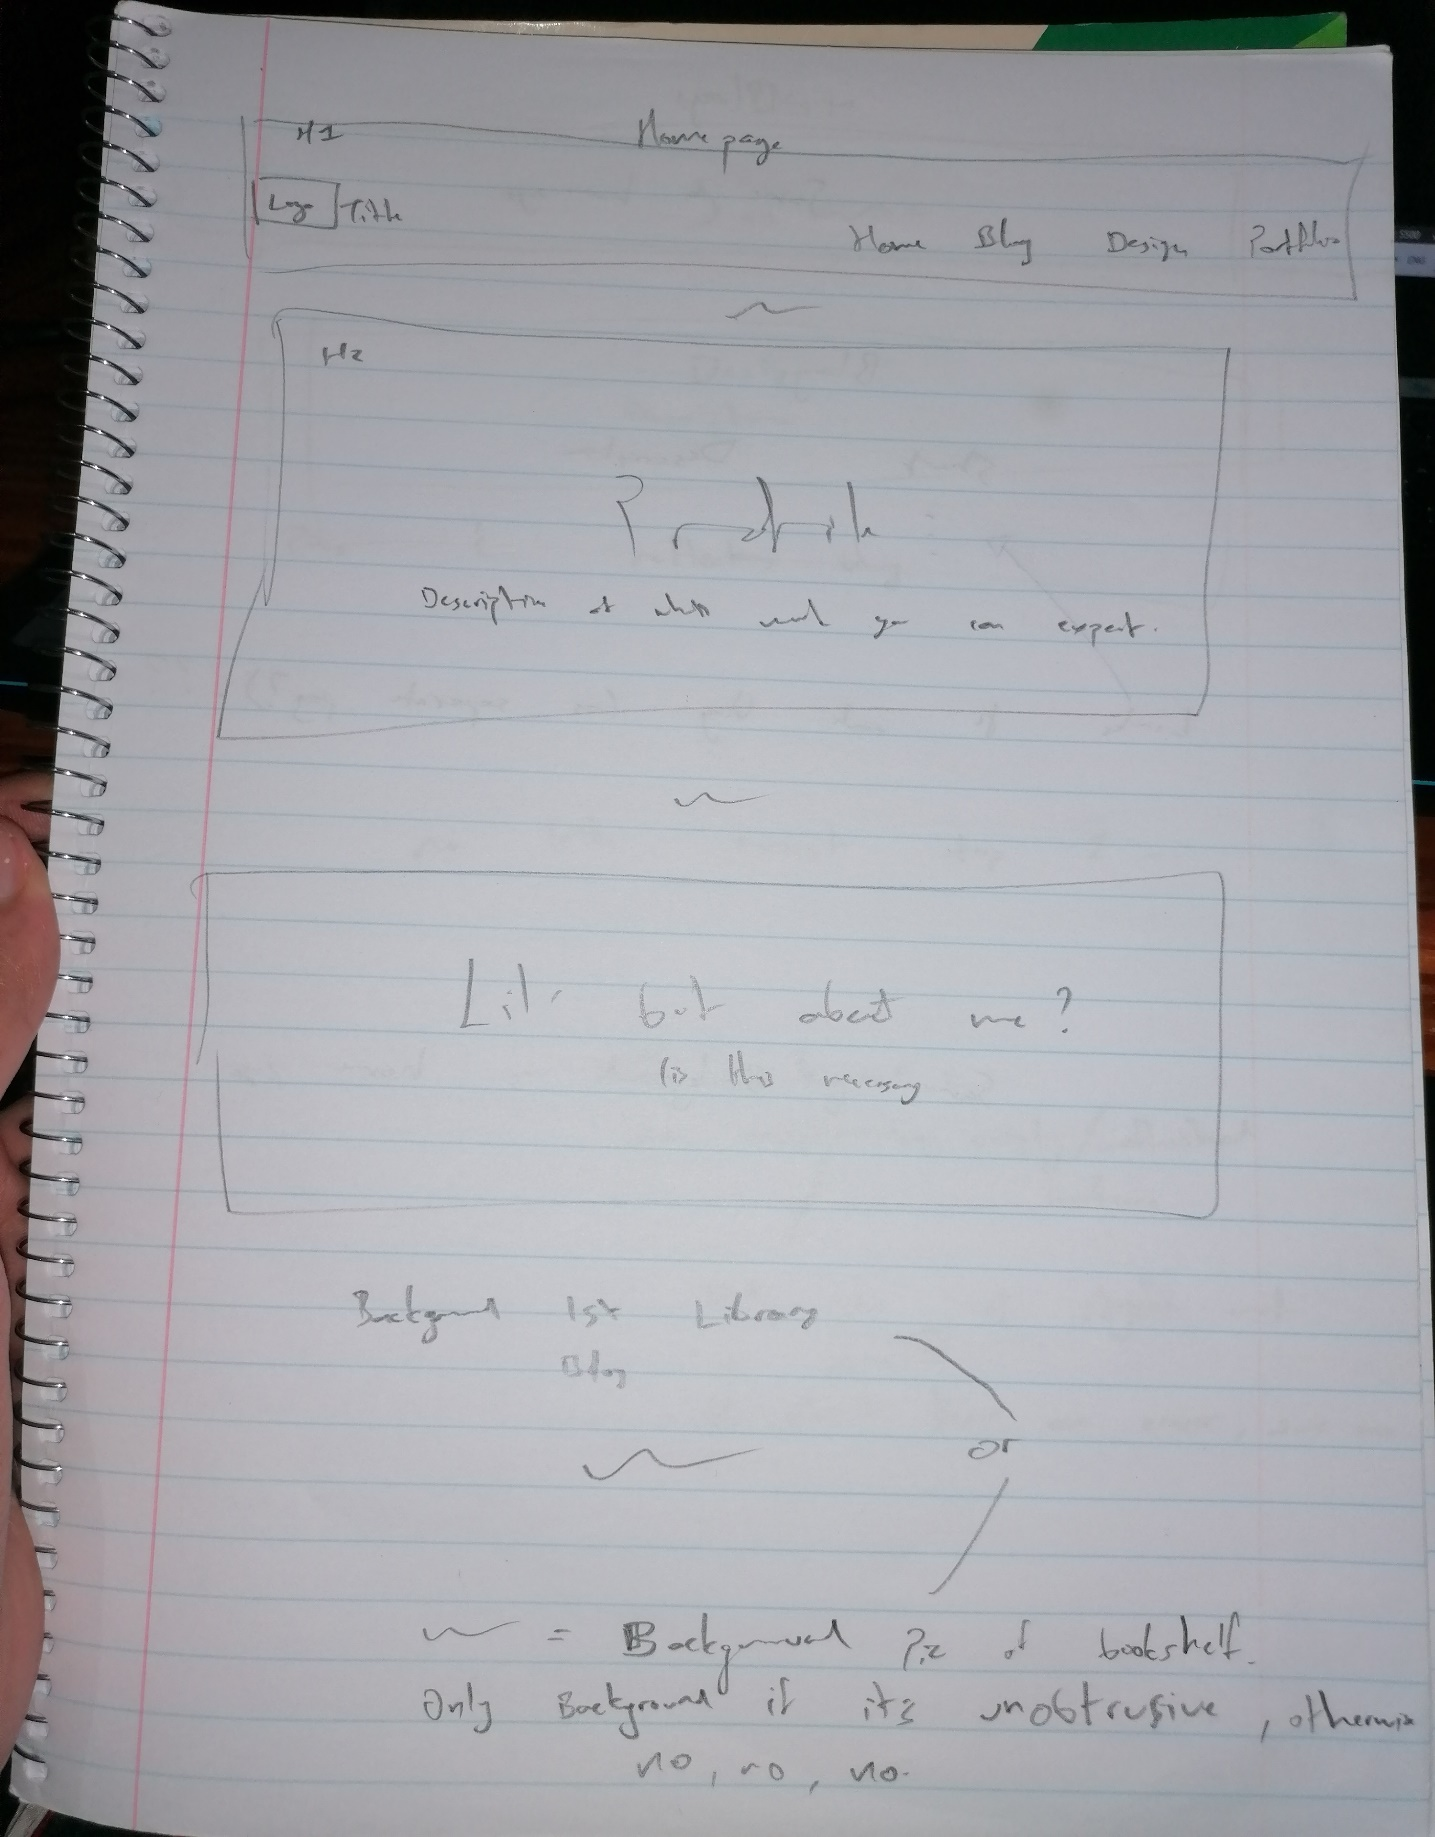 H1 Home page
Logo Title
Home Blog Design Portfolio
H2
Profile
Description of what work you can expect.
Lil' bit about me?
(is this necessary
Background 1st Library
Blog
or
= Background Pic of bookshelf.
Only Background if its unobtrusive, otherwise
no, no, no.